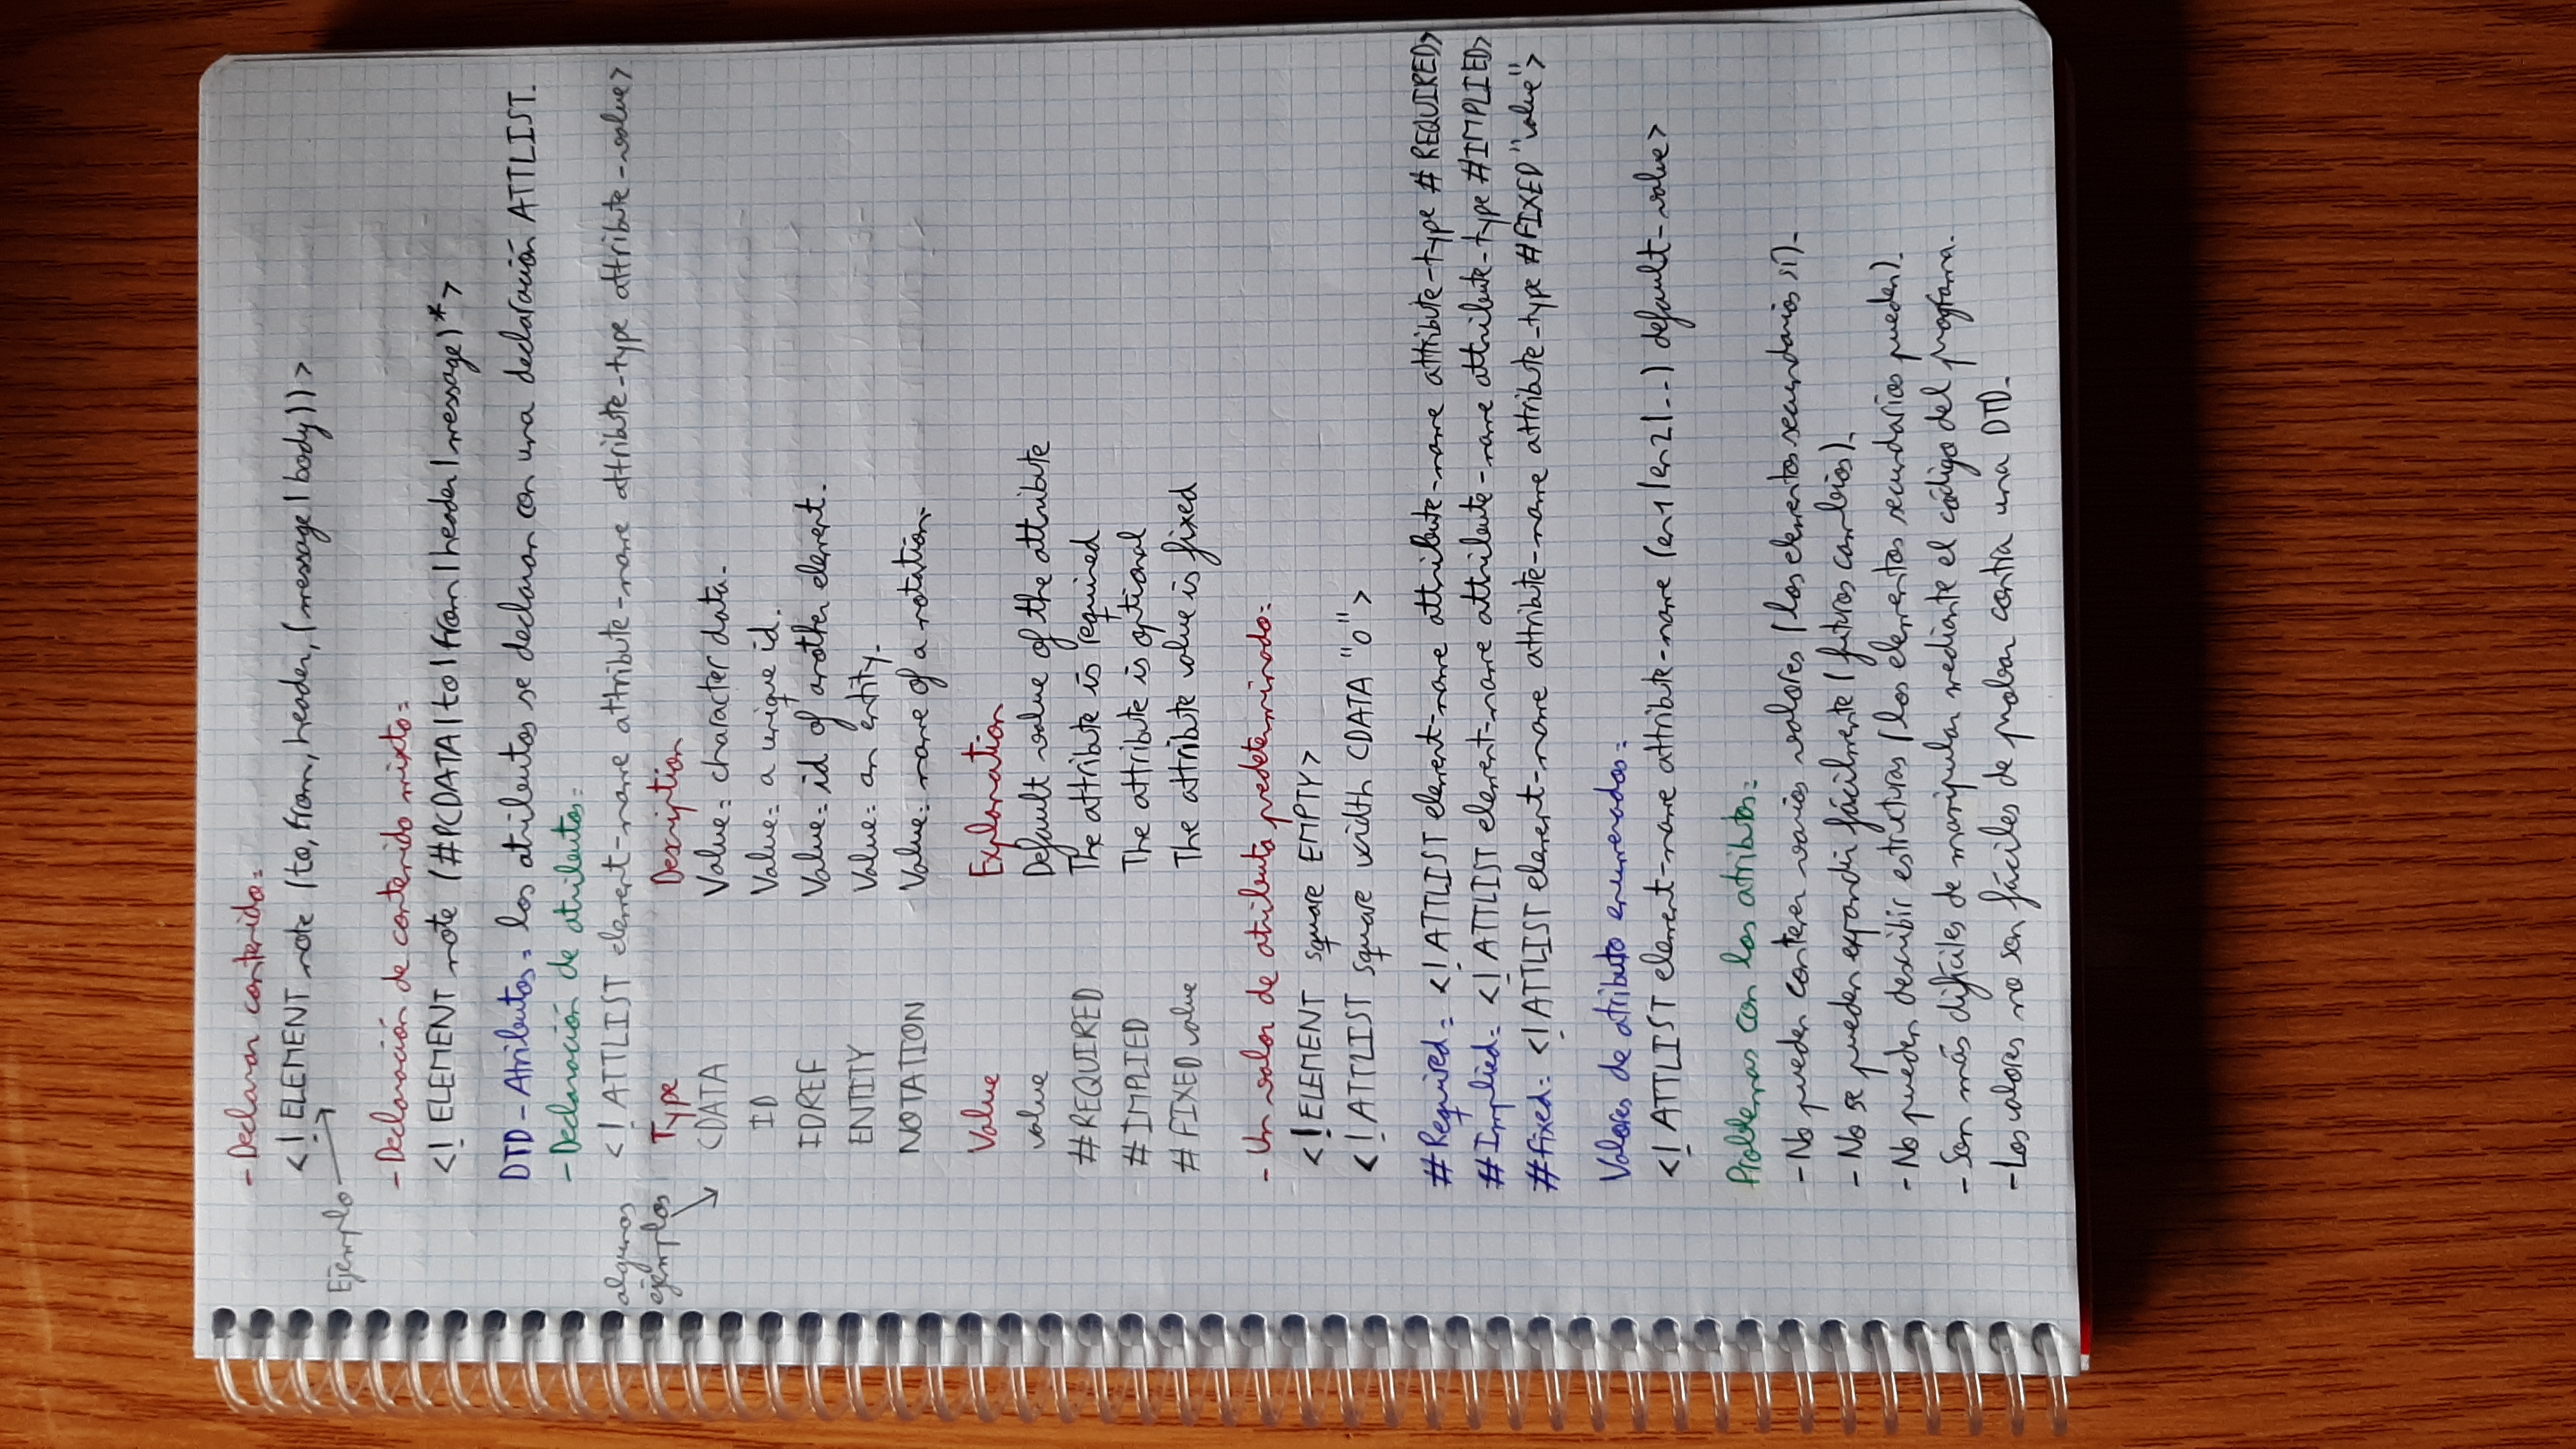 - Declarar contenido:
<! ELEMENT note (to, from, header, (message | body)) >
Ejemplo
- Declaración de contenido mixto:
<! ELEMENT note (#PCDATA | to | from | header | message)*>
DTD - Atributos: los atributos se declaran con una declaración ATTLIST.
- Declaración de atributos:
<! ATTLIST element-name attribute-name attribute-type attribute-value>
algunos
ejemplos
Type Description
CDATA Value: character data.
ID Value: a unique id.
IDREF Value: id of another element.
ENTITY Value: an entity.
NOTATION Value: name of a notation.
Value Explanation
value Default value of the attribute
#REQUIRED The attribute is required
#IMPLIED The attribute is optional
#FIXED value The attribute value is fixed
- Un valor de atributo predeterminado:
<!ELEMENT square EMPTY>
<! ATTLIST square width CDATA "0">
#Required: <! ATTLIST element-name attribute-name attribute-type #REQUIRED>
#Implied: <! ATTLIST element-name attribute-name attribute-type #IMPLIED>
#Fixed: <! ATTLIST element-name attribute-name attribute-type #FIXED "value">
Valores de atributo enumerados:
<! ATTLIST element-name attribute-name (en1 | en2 | ..) default-value>
Problemas con los atributos:
- No pueden contener varios valores (los elementos secundarios sí).
- No se pueden expandir fácilmente (futuros cambios).
- No pueden describir estructuras (los elementos secundarios pueden).
- Son más difíciles de manipular mediante el código del programa.
- Los valores no son fáciles de probar contra una DTD.